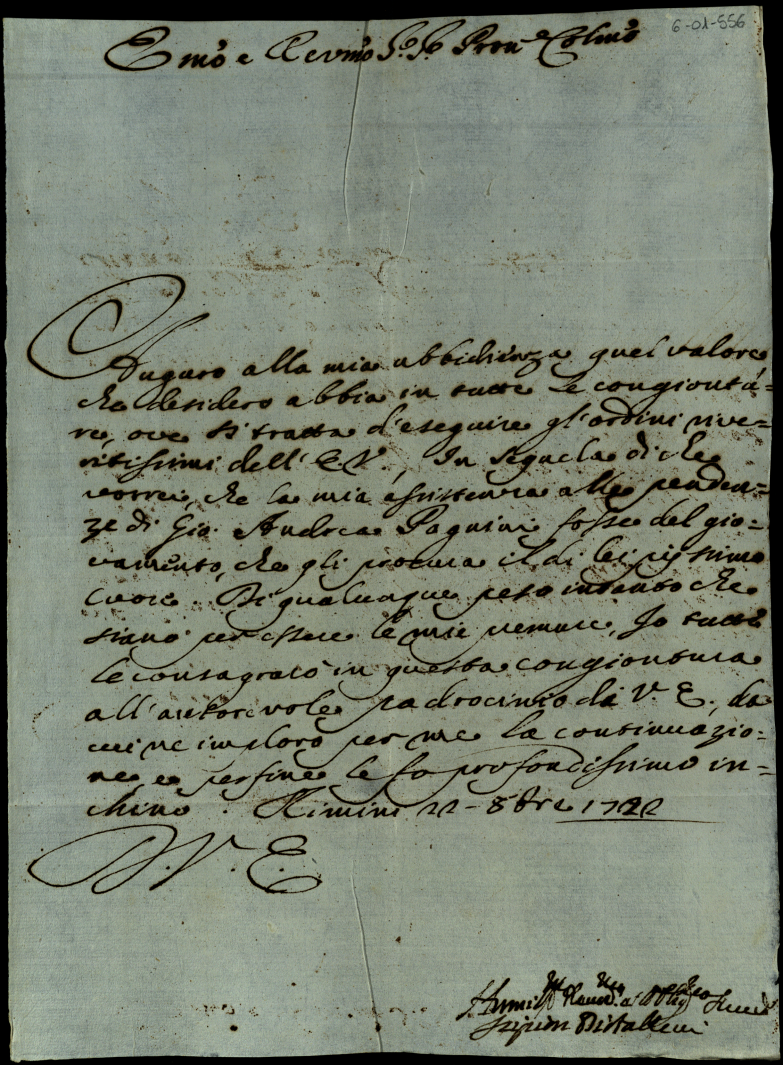 6-01-556
Emo e Revmo Sr. Sr. Pron.e Colmo
Auguro alla mia ubbidienza quel valore
che desidero abbia in tutte le congiontu=
re, ove si tratta d'eseguire gl'ordini rive=
ritissimi dell'E.V., In sequela di che
vorrei, che la mia assistenza alle penden=
ze di Gio. Andrea Pagnini fosse del gio=
vamento, che gli procura il di lei pijssimo
Cuore. Di qualunque peso intanto che
siano per essere le mie premure, Io tutte
le consagrarò in questa congiontura
all'autorevole padrocinio di V.E., da
cui ne imploro per me la continuazio=
ne, e per fine le fo profondissimo in=
chino. Rimini 22 - 8bre 1722
D. V. E.
Humil.mo Devot.mo ed Obblig.mo Serv.